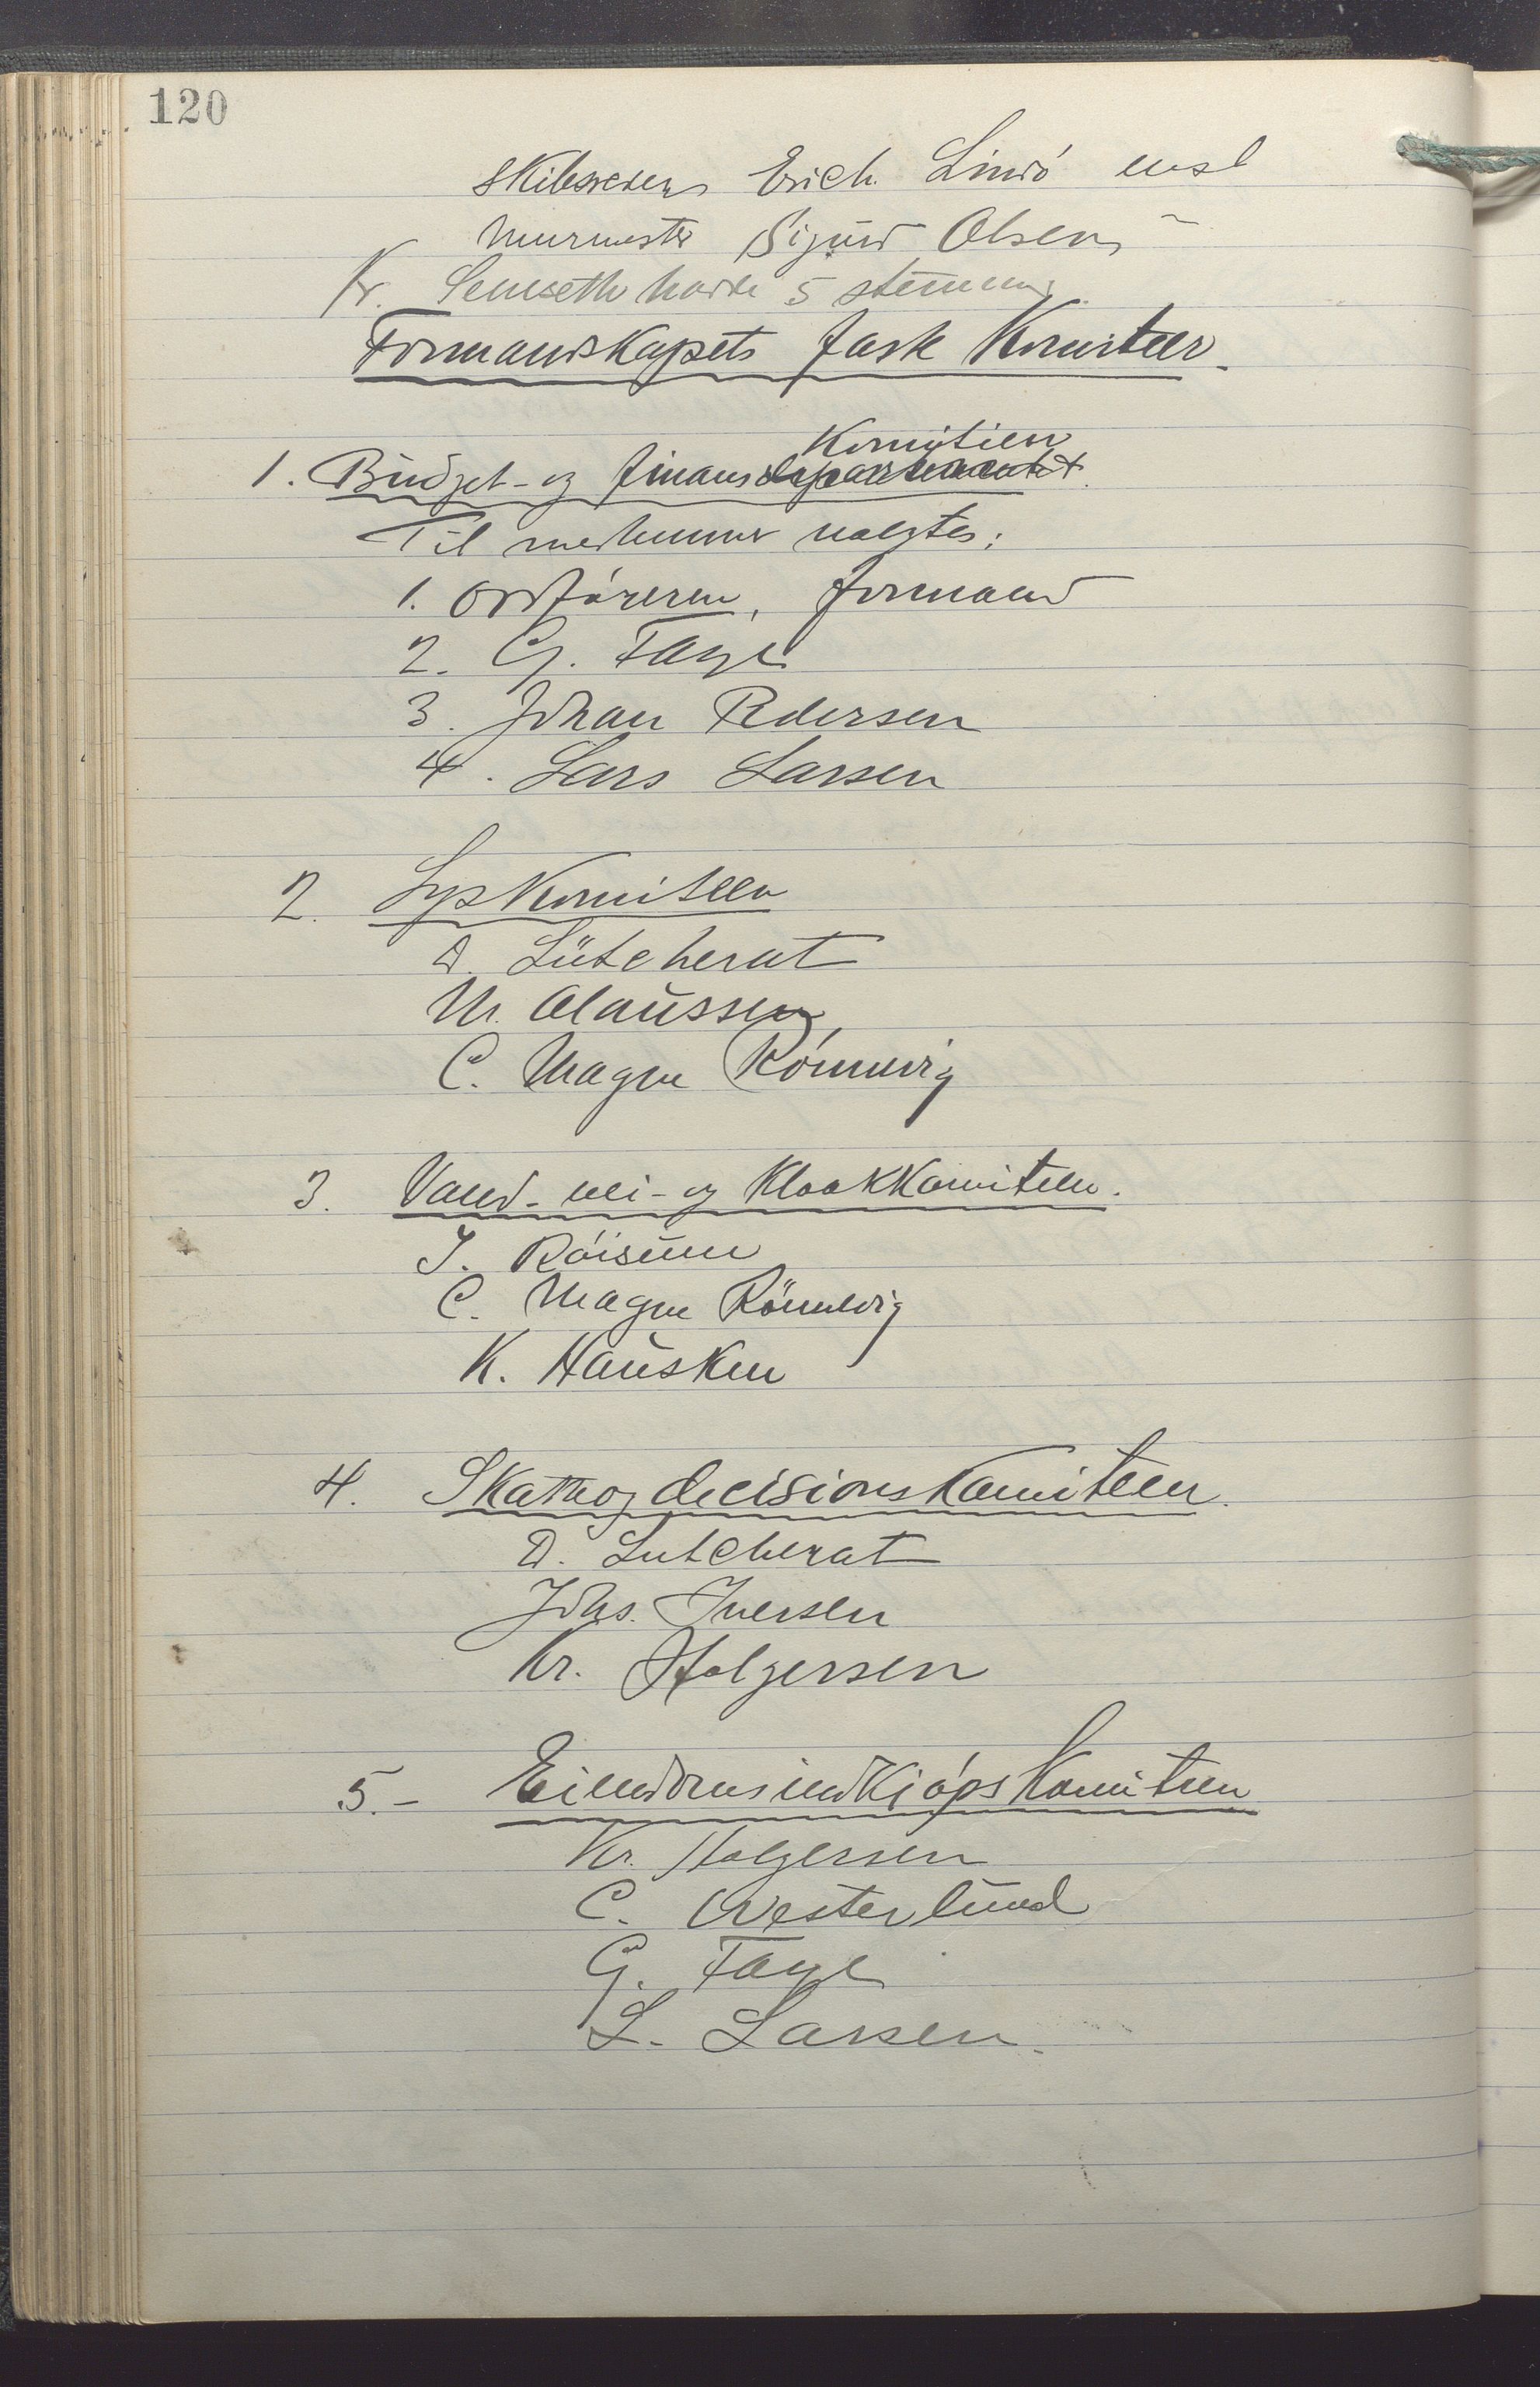 120
Skibsreder Erich Lindö enst
Murmester Sigurd Olsen "
Kr. Semseth havde 5 stemmer.
Formandskapets faste Komiteer.
Komiteen
1. Budget- og finansdepartementet.
Til medlemmer valgtes:
1. Ordföreren, formand
2. G. Faye
3. Johan Pedersen
4. Lars Larsen
2. Lyskomiteen
D. Lütcherat
M. Olaussen
C. Magne Rönnevig
3. Vand- vei- og Kloakkomiteen.
J. Röisum
C. Magne Rönnevig
K. Hausken
4. Skatte og decisionskomiteen.
D. Lutcherat
Johs. Iversen
Kr. Holgersen
5.- Eiendomsindkjöpskomiteen
Kr. Holgersen
C. Westerlund
G. Faye
L. Larsen.